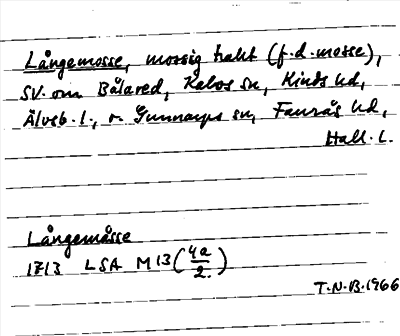 Långemosse, mossig trakt (f.d. mosse),
SV. om Bålared, Kalvs sn, Kinds hd,
Älvsb. l., o. Gunnarps sn, Faurås hd,
Hall. l.
Långemåsse
1713 LSA M13 (4a/2)
T.N.B. 1966